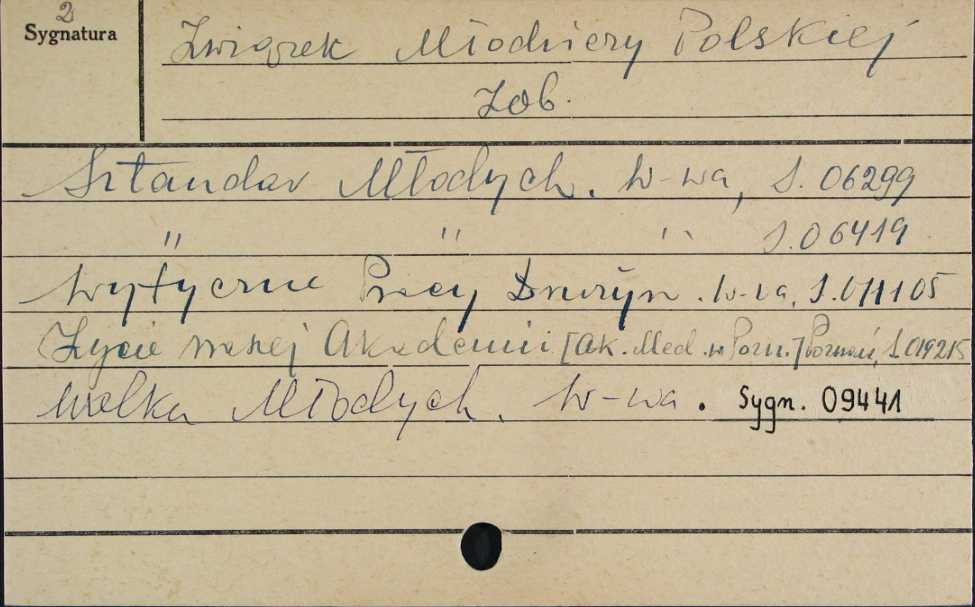 2
Sygnatura
Związek Młodzieży Polskiej
Zob.
Sztandar Młodych. W-wa, S. 06299
" " " S. 06419
Wytyczne Pracy Drużyn. W-wa, S. 011105
Życie naszej Akademii [Ak. Med. w Pozn.] Poznań, S. 019215
Walka Młodych. W-wa. Sygn. 09441